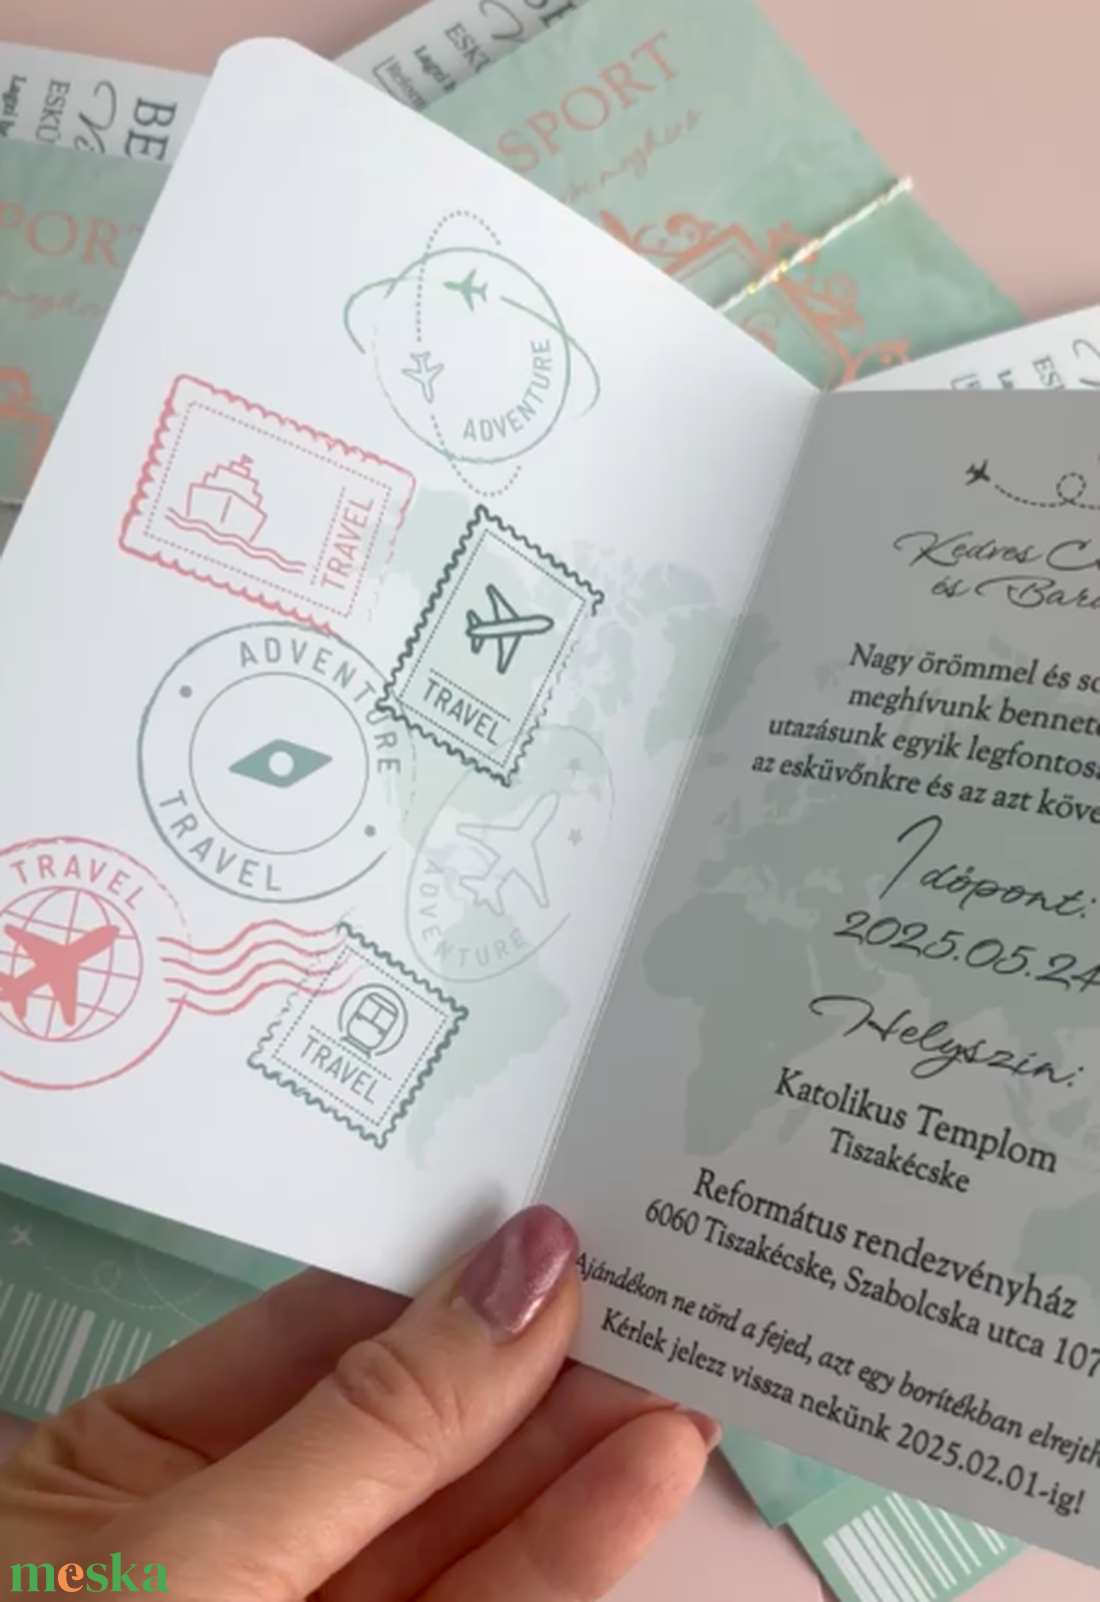 BE
ESKÜ
SPORT
PORT
ADVENTURE
TRAVEL
TRAVEL
ADVENTURE
TRAVEL
ADVENTURE
TRAVEL
TRAVEL
Kedves
és
Nagy örömmel és
meghívunk
utazásunk egyik
az esküvőnkre és az azt
Időpont:
2025.05.24
Helyszín:
Katolikus Templom
Tiszakécske
Református rendezvényház
6060 Tiszakécske, Szabolcska utca 107
Ajándékon ne törd a fejed, azt egy borítékban
Kérlek jelezz vissza nekünk 2025.02.01-ig!
meska